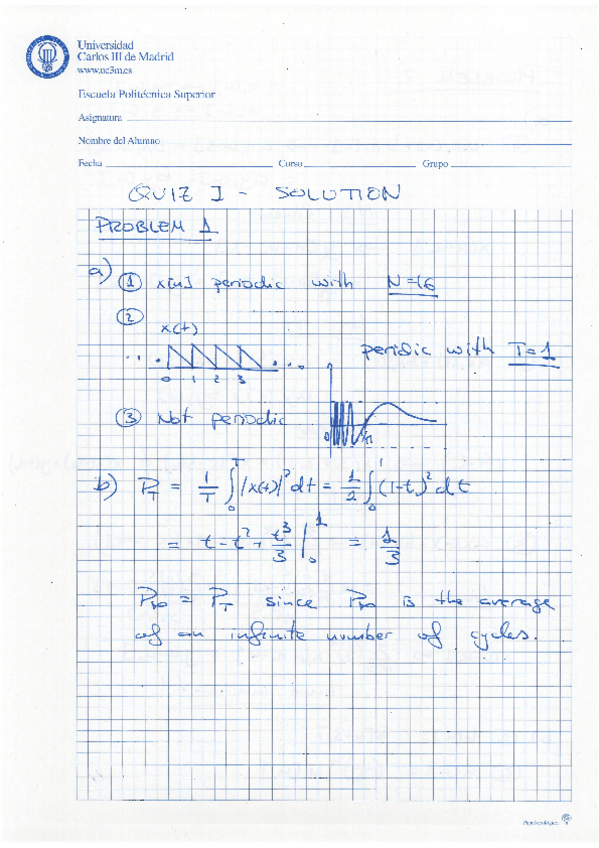 Universidad
Carlos III de Madrid
www.uc3m.es
Escuela Politécnica Superior
Asignatura
Nombre del Alumno
Fecha Curso Grupo
QUIZ I - SOLUTION
PROBLEM 1
a) ① x[n] periodic with N=16
②
x(t)
... ... periodic with T=1
0 1 2 3
③ Not periodic
0
b) P_T = 1/T ∫_0^T |x(t)|² dt = 1/2 ∫_0^1 (1-t)² dt
= t - t² + t³/3 |_0^1 = 1/3
P∞ = P_T since P∞ is the average
of an infinite number of cycles.